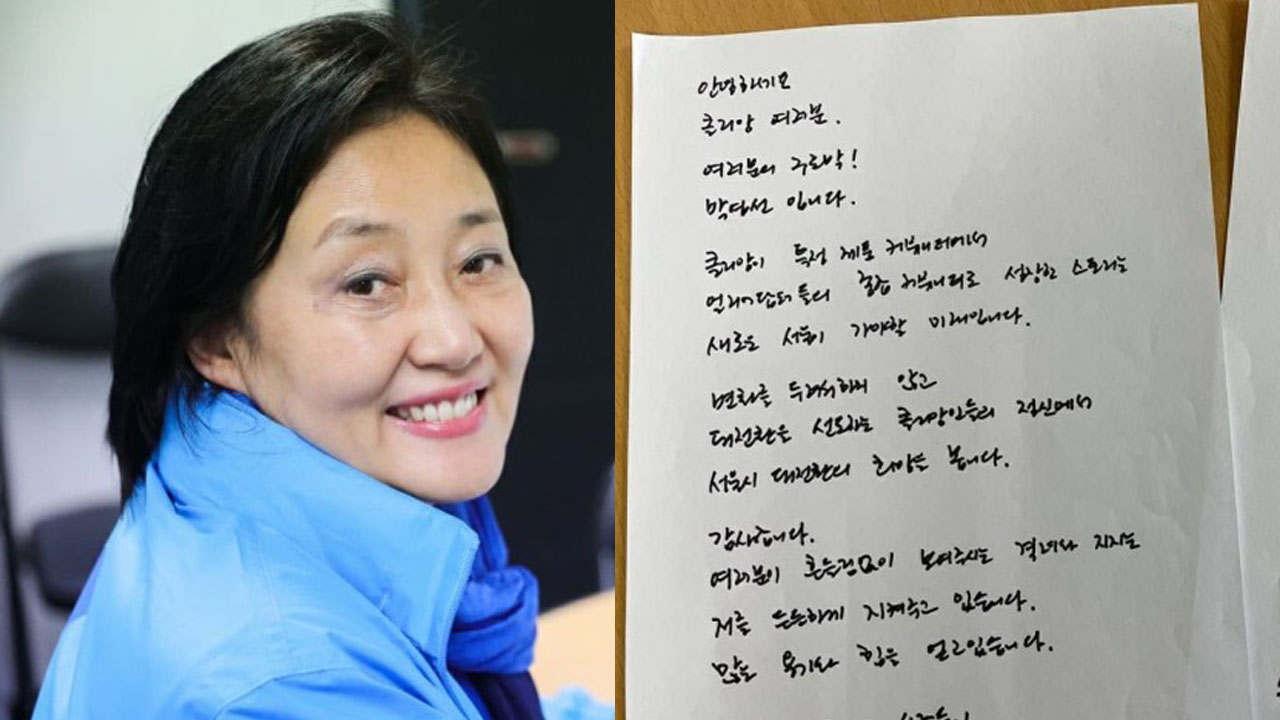 안녕하세요
클리앙 여러분.
여러분의 구로박!
박영선 입니다.
클리앙이 특정 제품 커뮤니티에서
얼리어답터들의 종합 커뮤니티로 성장한 스토리는
새로운 서울이 가야할 미래입니다.
변화를 두려워하지 않고
대전환을 선도하는 클리앙인들의 정신에서
서울시 대전환의 희망을 봅니다.
감사합니다.
여러분이 흔들림없이 보여주시는 격려와 지지는
저를 든든하게 지켜주고 있습니다.
많은 용기와 힘을 얻고있습니다.